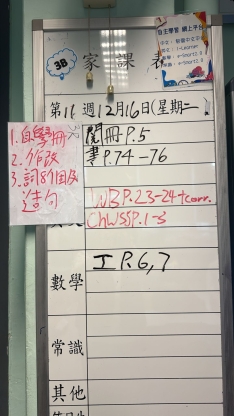 3B
家課表
自主學習 網上平台
第16週12月16日(星期二)
1.自學冊
2.作改
3.詞8個及
造句
閱冊P.5
書P.74-76
WB P.23-24+corr.
Ch WSS P.1-3
數學
工 P.6,7
常識
其他